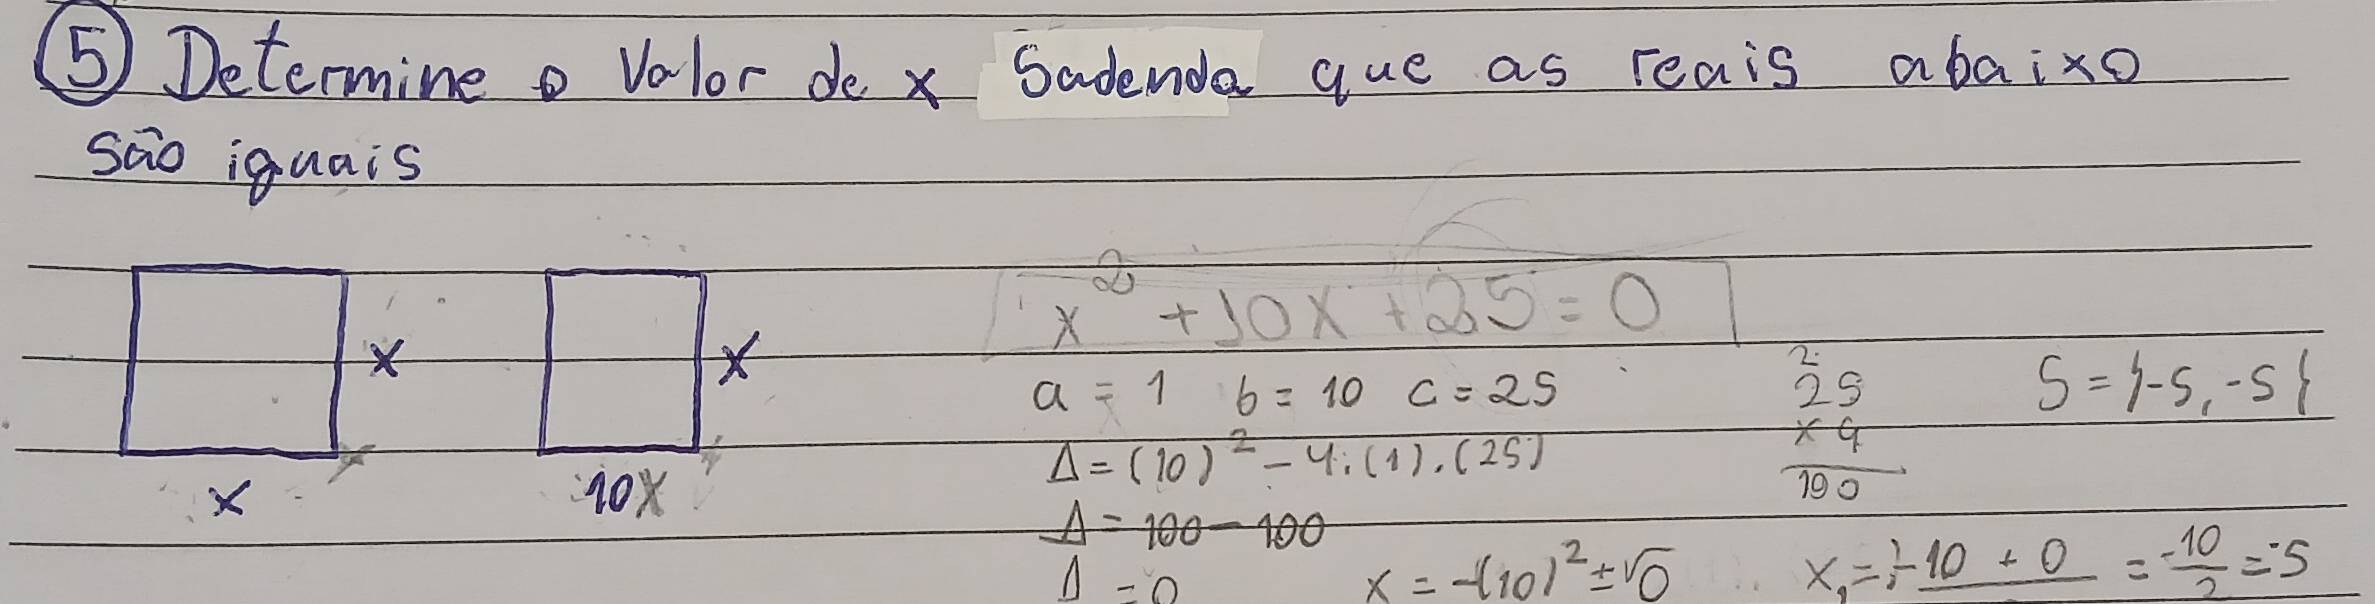 5 Determine o Valor de x Sadenda que as reais abaixo
são iguais
x
x
x
10X
x² + 10x + 25 = 0
a = 1 b = 10 c = 25
Δ = (10)² - 4.(1).(25)
Δ = 100 - 100
Δ = 0
x = -(10)² ± √0
2
25
x 4
100
S = {-5, -5}
x₁ = -10 + 0 = -10/2 = -5